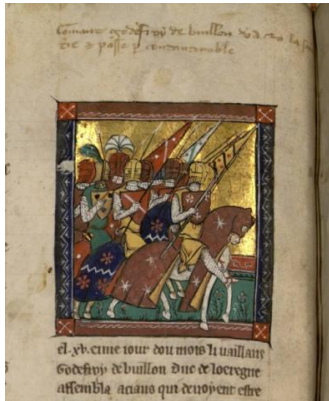 Comant godefroy de buillon
passe p constantinoble
el .xv. eime iour dou mois li vaillanz
Godefroy de buillon Duc de loeregne
assembla aciaus qui devoyent estre